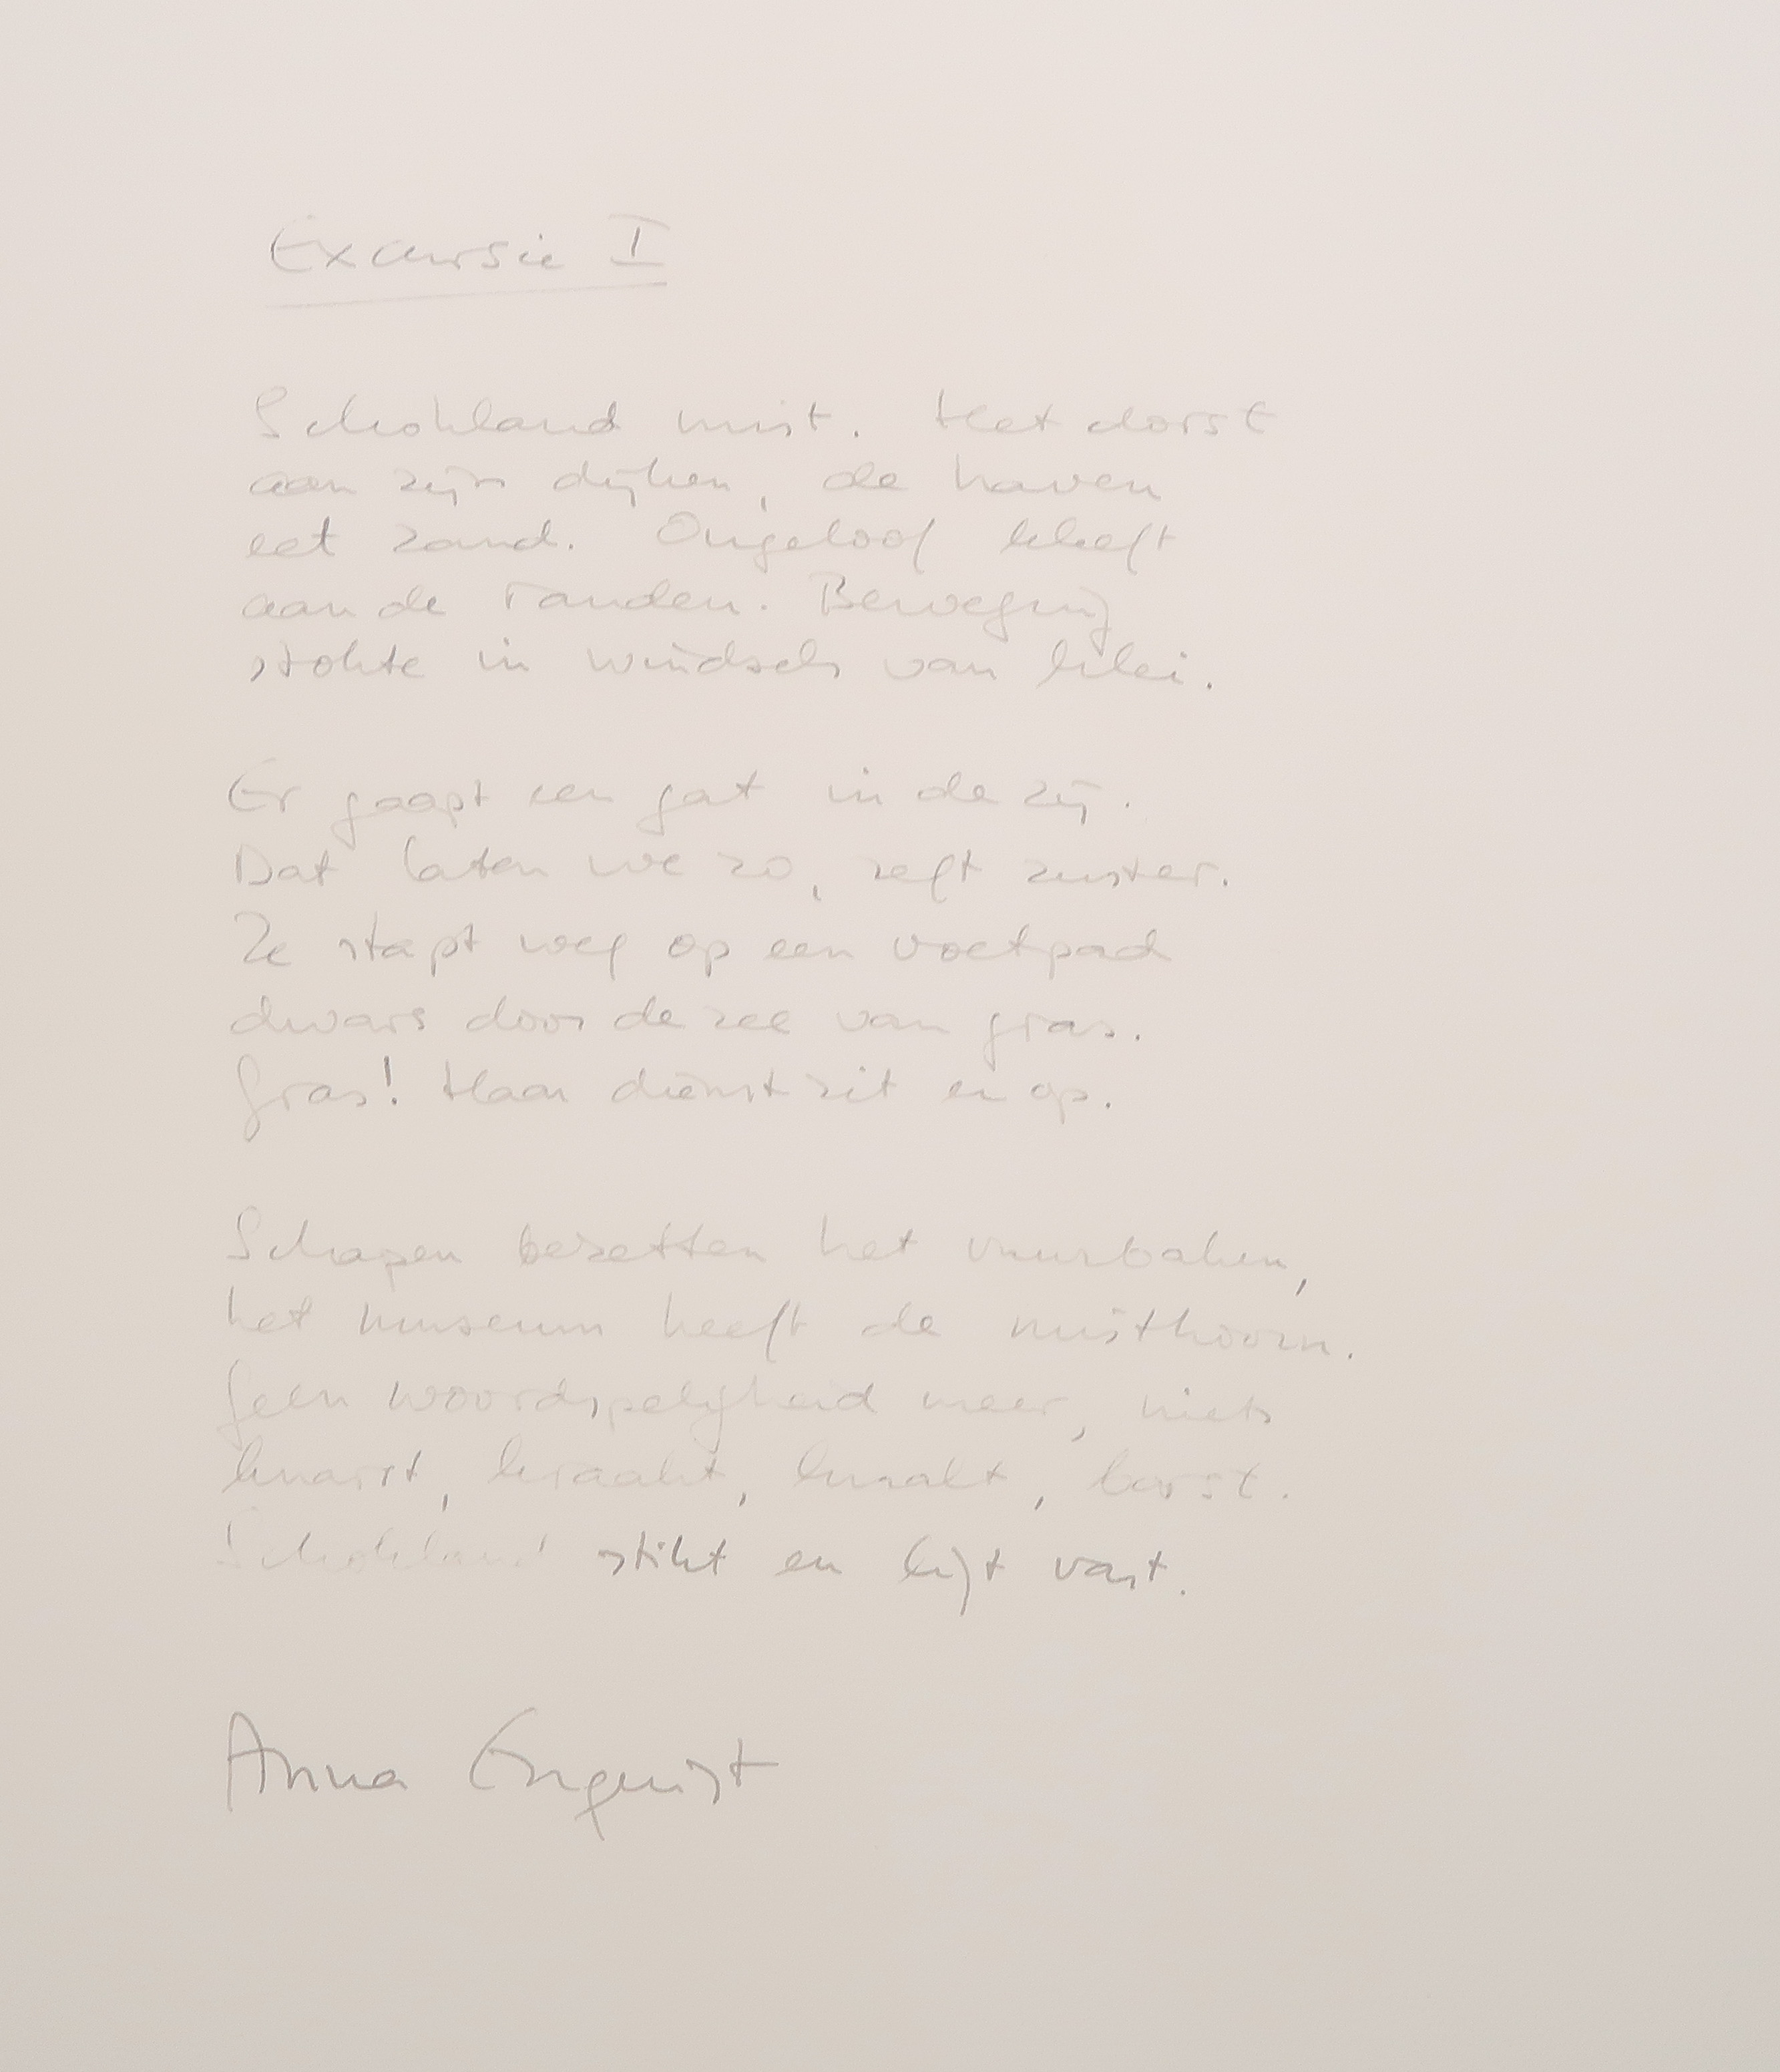 Excursie I
Schokland mist. Het dorst
aan zijn dijken, de haven
eet zand. Ongeloof kleeft
aan de randen. Beweging
stokte in windsels van klei.
Er gaapt een gat in de zij.
Dat laten we zo, zegt zuster.
Ze stapt weg op een voetpad
dwars door de zee van gras.
Gras! Haar dienst zit er op.
Schapen bezetten het vuurbaken,
het museum heeft de misthoorn.
Geen woordspeligheid meer, niets
knarst, kraakt, knakt, barst.
Schokland stikt en ligt vast.
Anna Enquist